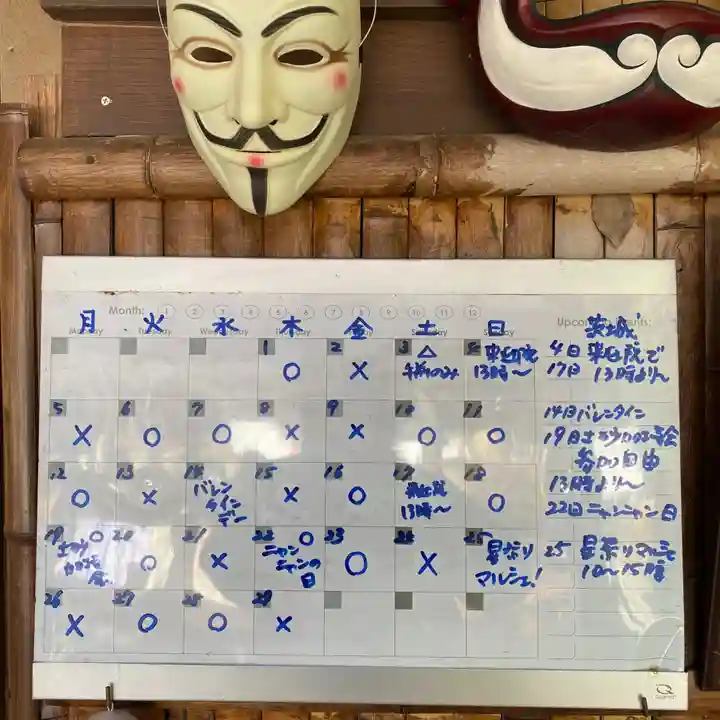 Month: 1 2 3 4 5 6 7 8 9 10 11 12
月 火 水 木 金 土 日
茨城
1 2 3 4
○ × △ 13時〜
午前のみ
5 6 7 8 9 10 11
× ○ ○ × × ○ ○
12 13 14 15 16 17 18
○ × バレンタインデー × ○ 13時〜 ○
19 20 21 22 23 24 25
○ ○ × ○ ○ ×
ニャンニャンの日
星祭りマルシェ!
26 27 28 29
× ○ ○ ×
4日
17日 13時より〜
14日バレンタイン
19日
参加自由
13時より〜
22日ニャンニャン日
25 星祭りマルシェ
10〜15時